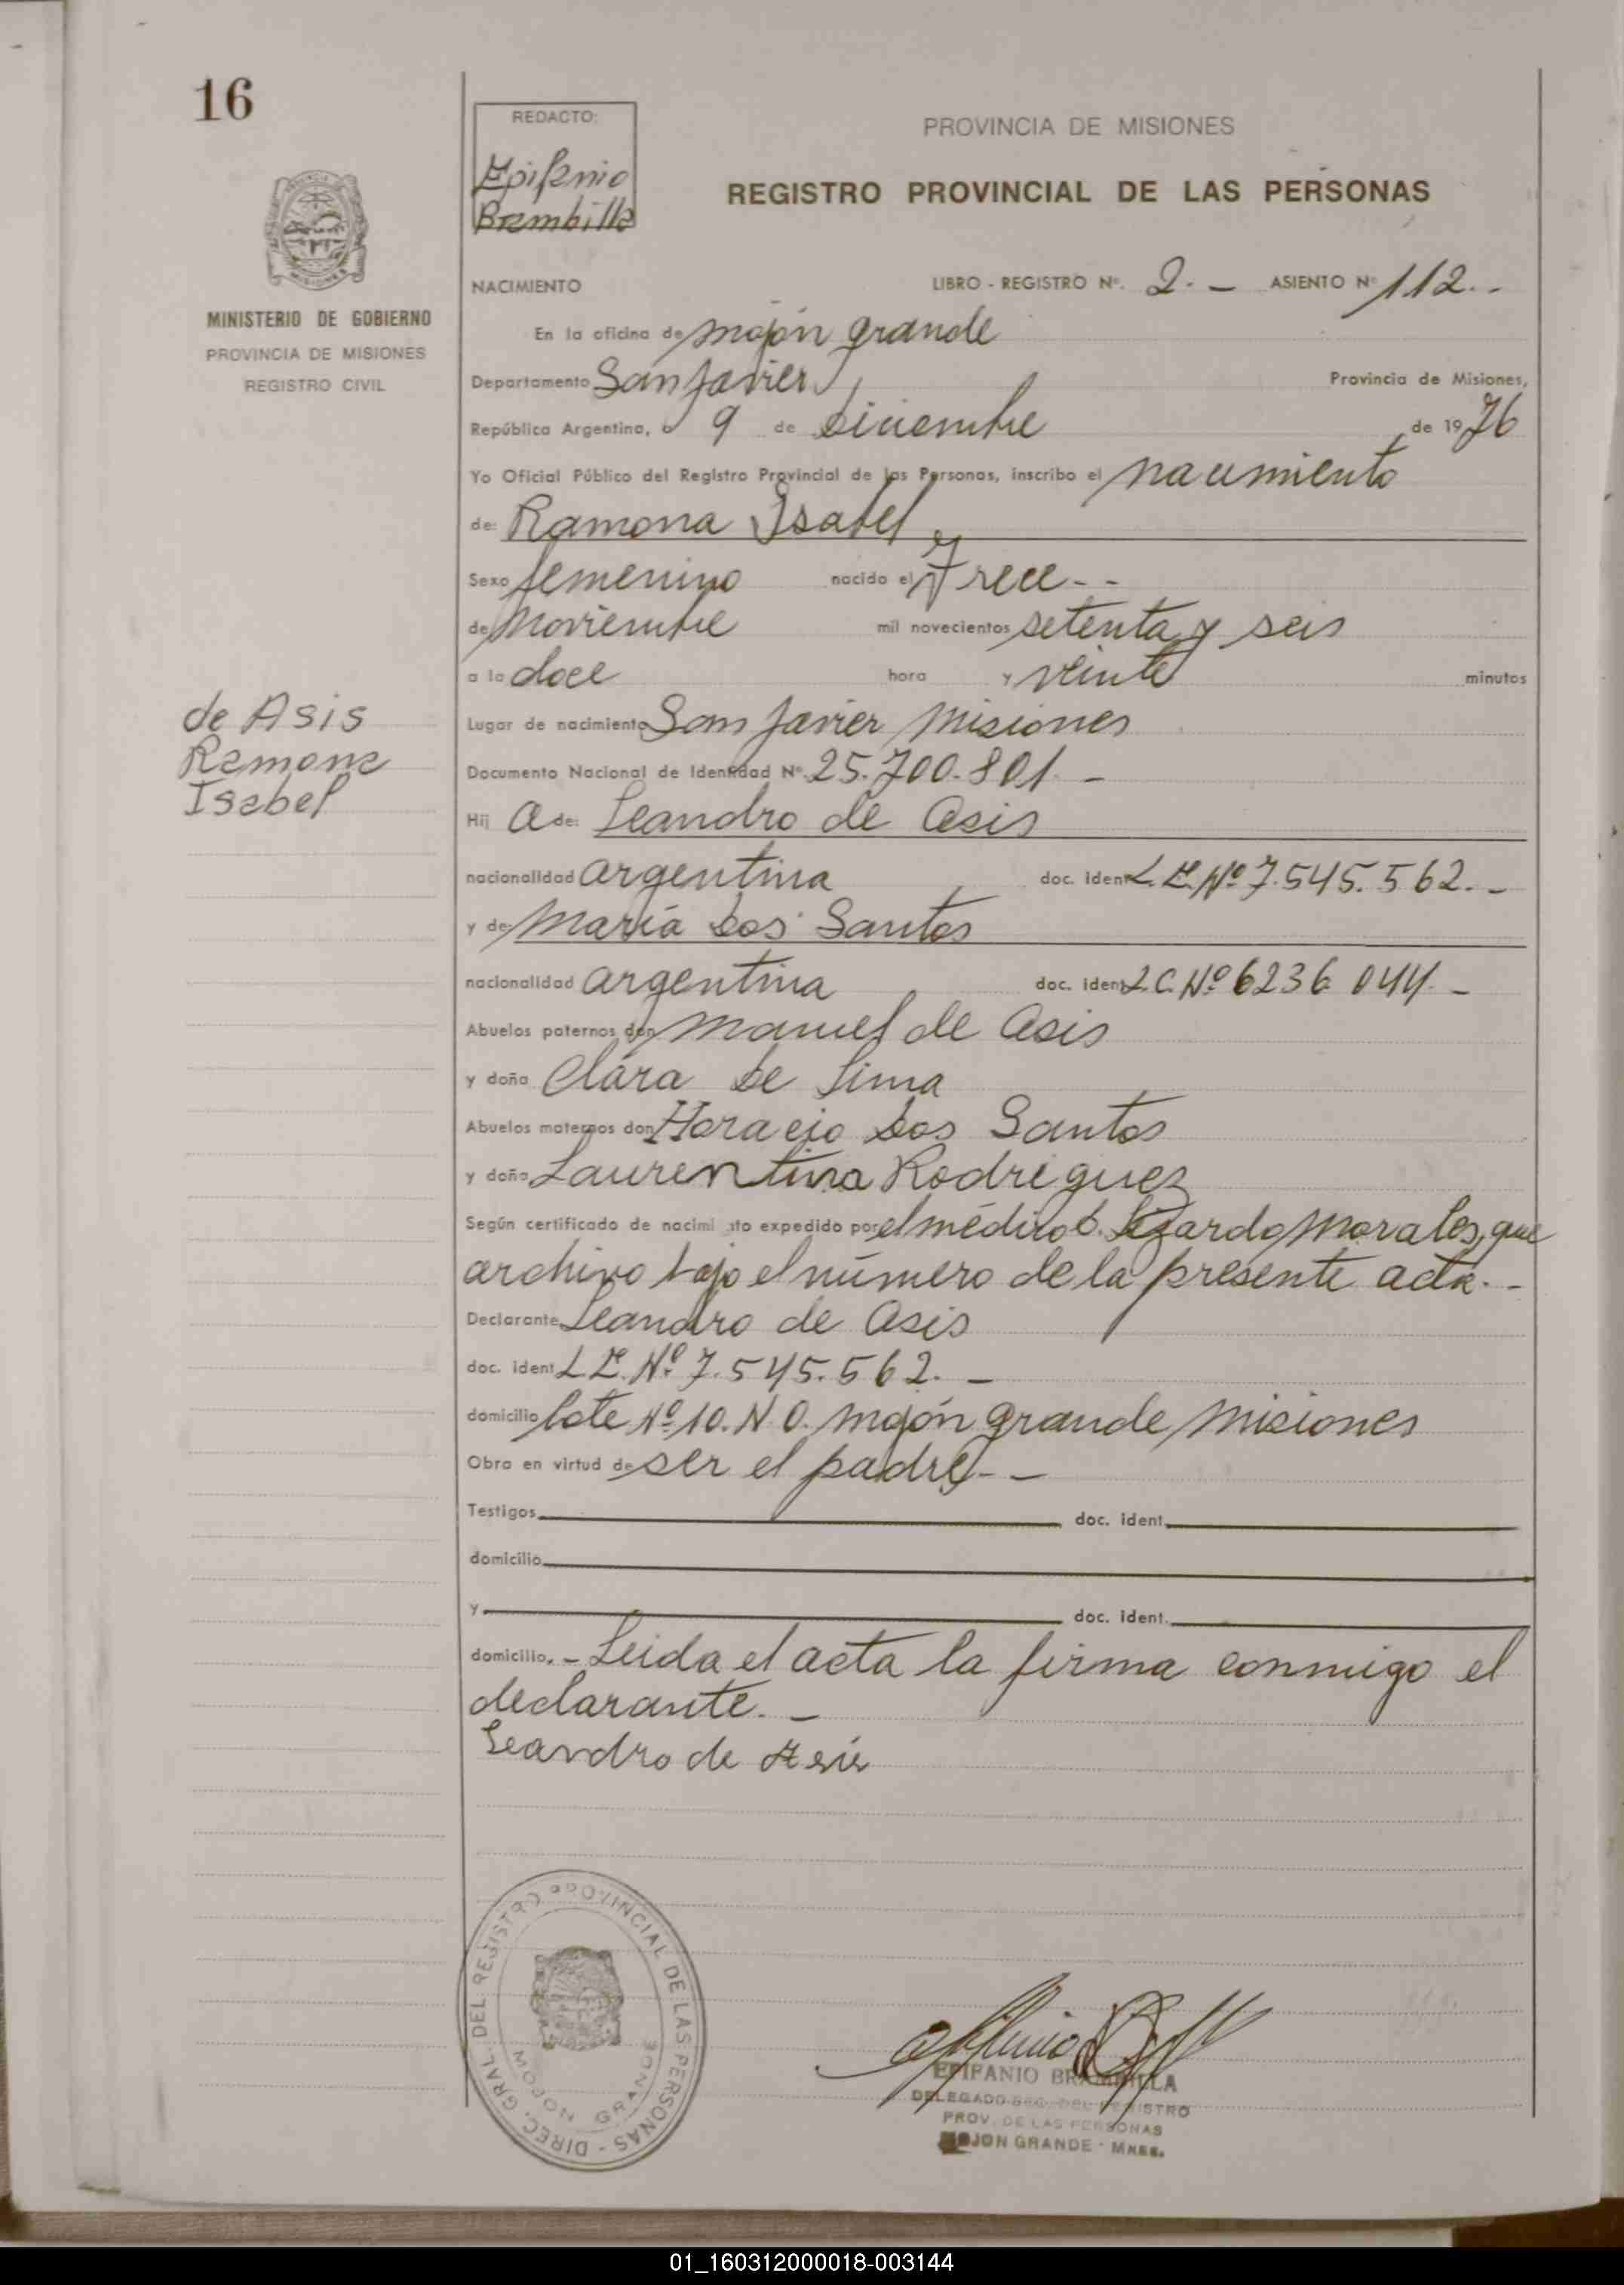 16
REDACTO:
Epifanio
Brambilla
PROVINCIA DE MISIONES
REGISTRO PROVINCIAL DE LAS PERSONAS
MINISTERIO DE GOBIERNO
PROVINCIA DE MISIONES
REGISTRO CIVIL
NACIMIENTO LIBRO - REGISTRO Nº. 2. - ASIENTO Nº 112. -
En la oficina de mojón grande
Departamento San Javier Provincia de Misiones,
República Argentina, a 9 de Diciembre de 1976
Yo Oficial Público del Registro Provincial de las Personas, inscribo el nacimiento
de: Ramona Isabel
Sexo femenino nacido el Trece - -
de Noviembre mil novecientos setenta y seis
a la doce hora y veinte minutos
Lugar de nacimiento San Javier Misiones
Documento Nacional de Identidad Nº. 25.700.801. -
de Asis
Ramona
Isabel
Hij a de: Leandro de Asis
nacionalidad argentina doc. ident L.E. Nº 7.545.562. -
y de: María Dos Santos
nacionalidad argentina doc. ident L.C. Nº 6236 044. -
Abuelos paternos don Manuel de Asis
y doña Clara De Lima
Abuelos maternos don Horacio Dos Santos
y doña Laurentina Rodriguez
Según certificado de nacimi nto expedido por el médico D. Lizardo Morales, que
archivo bajo el número de la presente acta. -
Declarante Leandro de Asis
doc. ident L.E. Nº 7.545.562. -
domicilio lote Nº 10. N.O. mojón grande Misiones
Obra en virtud de ser el padre - -
Testigos doc. ident.
domicilio
y doc. ident.
domicilio. - Leida el acta la firma conmigo el
declarante. -
Leandro de Asis
DIREC. GRAL. DEL REGISTRO PROVINCIAL DE LAS PERSONAS -
MOJON GRANDE
EPIFANIO BRAMBILLA
DELEGADO DEL REGISTRO
PROV. DE LAS PERSONAS
MOJON GRANDE - MNES.
01_160312000018-003144